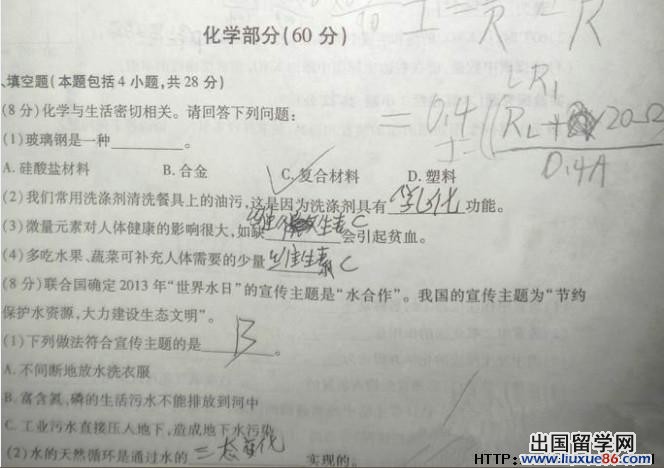 化学部分(60分)
、填空题(本题包括4小题,共28分)
(8分)化学与生活密切相关。请回答下列问题:
(1)玻璃钢是一种________。
A. 硅酸盐材料 B. 合金 C. 复合材料 D. 塑料
(2)我们常用洗涤剂清洗餐具上的油污,这是因为洗涤剂具有 乳化 功能。
(3)微量元素对人体健康的影响很大,如缺 维生素C 会引起贫血。
(4)多吃水果、蔬菜可补充人体需要的少量 维生素C
(8分)联合国确定2013年“世界水日”的宣传主题是“水合作”。我国的宣传主题为“节约
保护水资源,大力建设生态文明”。
(1)下列做法符合宣传主题的是 B 。
A. 不间断地放水洗衣服
B. 富含氮,磷的生活污水不能排放到河中
C. 工业污水直接压入地下,造成地下水污染
(2)水的天然循环是通过水的 三态变化 实现的。
= 0.4
20Ω
0.4A
出国留学网
HTTP:
www.liuxue86.com